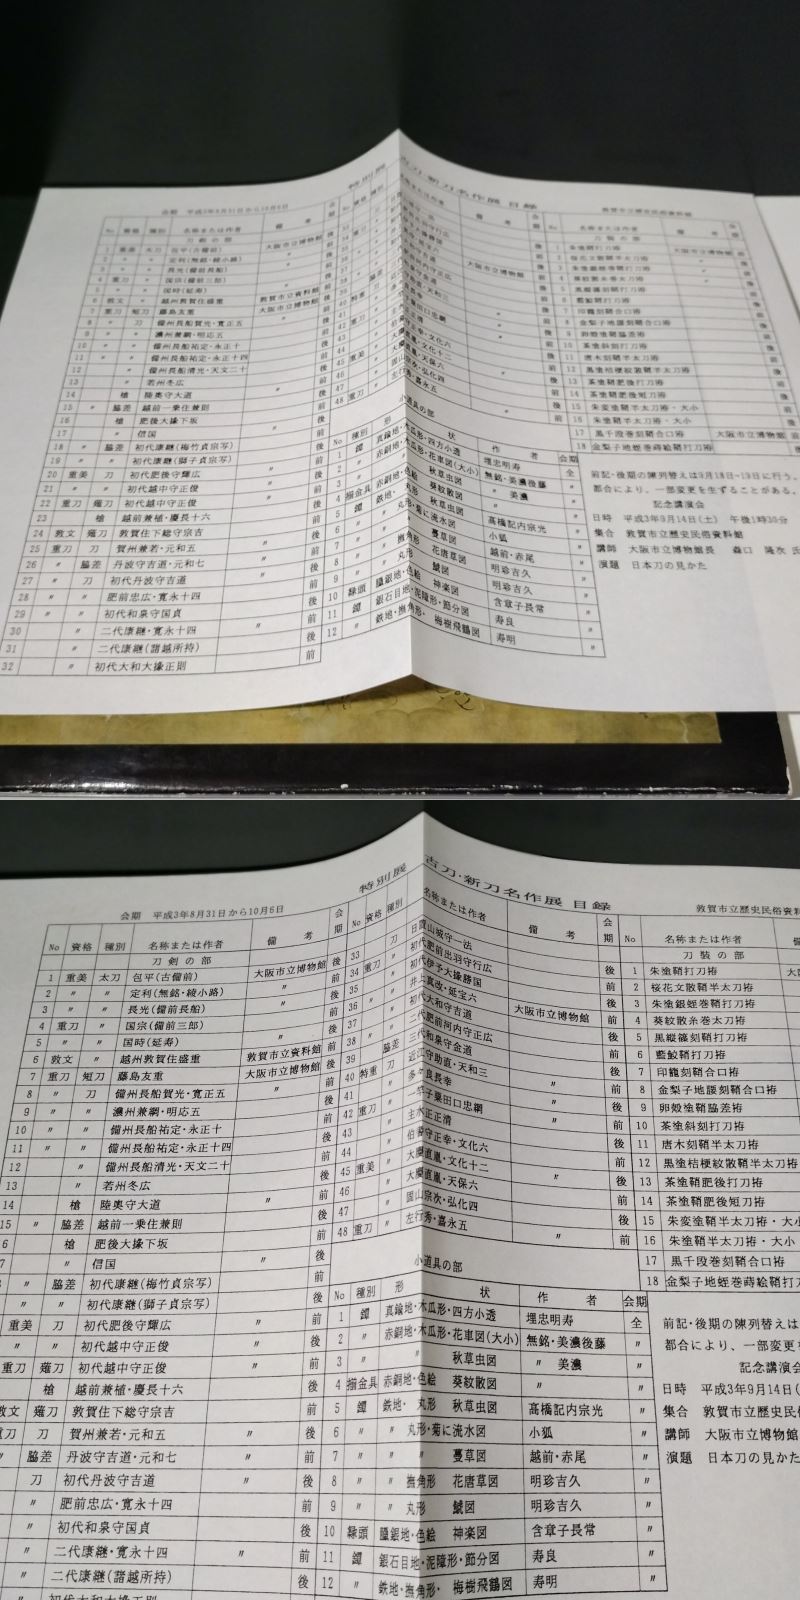 特別展 古刀・新刀名作展 目録
会期 平成3年8月31日から10月6日
敦賀市立歴史民俗資料館
No 資格 種別 名称または作者 備考 会期
刀剣の部
1 重美 太刀 包平(古備前) 大阪市立博物館 後
2 〃 〃 定利(無銘・綾小路) 〃 前
3 〃 〃 長光(備前長船) 〃 後
4 重刀 〃 国宗(備前三郎) 〃 前
5 〃 〃 国時(延寿) 〃 後
6 敦文 〃 越州敦賀住盛重 敦賀市立資料館 前
7 重刀 短刀 藤島友重 大阪市立博物館 後
8 〃 刀 備州長船賀光・寛正五 〃 前
9 〃 〃 濃州兼網・明応五 後
10 〃 〃 備州長船祐定・永正十 前
11 〃 〃 備州長船祐定・永正十四 後
12 〃 備州長船清光・天文二十 前
13 〃 若州冬広 後
14 槍 陸奥守大道 〃 前
15 〃 脇差 越前一乗住兼則 後
16 槍 肥後大掾下坂 前
17 〃 信国 〃 後
18 〃 脇差 初代康継(梅竹貞宗写) 前
19 〃 〃 初代康継(獅子貞宗写) 後
20 重美 刀 初代肥後守輝広 〃 前
21 〃 〃 初代越中守正俊 〃 後
22 重刀 薙刀 初代越中守正俊 〃 前
23 槍 越前兼植・慶長十六 後
24 敦文 薙刀 敦賀住下総守宗吉 前
25 重刀 刀 賀州兼若・元和五 〃 後
26 〃 脇差 丹波守吉道・元和七 〃 前
27 〃 刀 初代丹波守吉道 〃 後
28 〃 〃 肥前忠広・寛永十四 前
29 〃 〃 初代和泉守国貞 後
30 〃 二代康継・寛永十四 〃 前
31 〃 二代康継(諸越所持) 後
32 〃 初代大和大掾正則 前
No 資格 種別 名称または作者 備考 会期
33 刀 日置山城守一法 後
34 重刀 〃 初代肥前出羽守行広 前
35 〃 初代伊予大掾勝国 後
36 〃 〃 井上真改・延宝六 前
37 〃 初代大和守吉道 大阪市立博物館 後
38 〃 〃 二代肥前河内守正広 前
39 脇差 三代和泉守金道 後
40 特重 刀 近江守助直・天和三 前
41 〃 多々良長幸 〃 後
42 重刀 〃 一竿子粟田口忠綱 〃 前
43 〃 主水正正清 後
44 〃 伯耆守正幸・文化六 前
45 重美 〃 大慶直胤・文化十二 〃 後
46 〃 大慶直胤・天保六 前
47 〃 固山宗次・弘化四 後
48 重刀 〃 左行秀・嘉永五 〃 前
小道具の部
No 種別 形状 作者 会期
1 鐔 真鍮地・木瓜形・四方小透 埋忠明寿 全
2 〃 赤銅地・木瓜形・花車図(大小) 無銘・美濃後藤 〃
3 〃 〃 秋草虫図 〃 美濃 〃
4 揃金具 赤銅地・色絵 葵紋散図 〃 〃
5 鐔 鉄地・丸形 秋草虫図 髙橋記内宗光 〃
6 〃 〃 丸形・菊に流水図 小狐 〃
7 〃 〃 〃 蔓草図 越前・赤尾 〃
8 〃 〃 撫角形 花唐草図 明珍吉久 〃
9 〃 〃 丸形 鯱図 明珍吉久 〃
10 縁頭 朧銀地・色絵 神楽図 含章子長常 〃
11 鐔 銀石目地・泥障形・節分図 寿良 〃
12 〃 鉄地・撫角形・梅樹飛鶴図 寿明 〃
No 名称または作者 備考 会期
刀装の部
1 朱塗鞘打刀拵 大阪市立博物館 後
2 桜花文散鞘半太刀拵 〃 前
3 朱塗銀蛭巻鞘打刀拵 〃 後
4 葵紋散糸巻太刀拵 〃 前
5 黒縦篠刻鞘打刀拵 後
6 藍鮫鞘打刀拵 前
7 印籠刻鞘合口拵 後
8 金梨子地腰刻鞘合口拵 前
9 卵殻塗鞘脇差拵 後
10 茶塗斜刻打刀拵 前
11 唐木刻鞘半太刀拵 後
12 黒塗桔梗紋散鞘半太刀拵 前
13 茶塗鞘肥後打刀拵 後
14 茶塗鞘肥後短刀拵 前
15 朱変塗鞘半太刀拵・大小 後
16 朱塗鞘半太刀拵・大小 前
17 黒千段巻刻鞘合口拵 大阪市立博物館
18 金梨子地蛭巻蒔絵鞘打刀拵 〃
前記・後期の陳列替えは9月18日~19日に行う。
都合により、一部変更を生ずることがある。
記念講演会
日時 平成3年9月14日(土) 午後1時30分
集合 敦賀市立歴史民俗資料館
講師 大阪市立博物館長 森口 隆次 氏
演題 日本刀の見かた